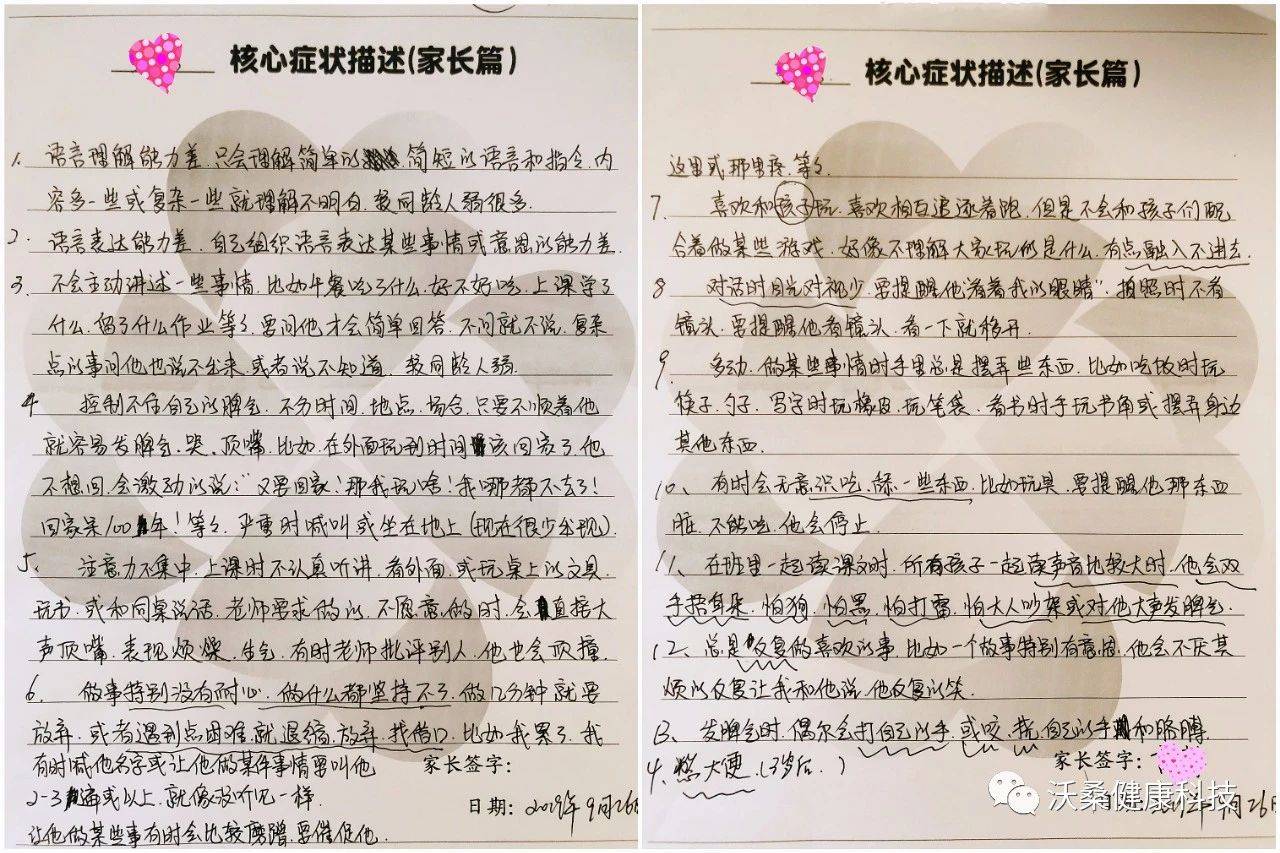 核心症状描述(家长篇)
1. 语言理解能力差.只会理解简单的 简短的语言和指令.内
容多一些或复杂一些就理解不明白.较同龄人弱很多.
2. 语言表达能力差.自己组织语言表达某些事情或意思的能力差.
3. 不会主动讲述一些事情.比如午餐吃了什么.好不好吃.上课学了
什么.留了什么作业等等.要问他才会简单回答.不问就不说.复杂
点的事问他也说不出来.或者说不知道.较同龄人弱.
4 控制不住自己的脾气.不分时间.地点.场合.只要不顺着他
就容易发脾气.哭、顶嘴.比如.在外面玩到时间该回家了.他
不想回.会激动的说:"又要回家!那我玩啥!我哪都不去了!
回家呆100年!等等.严重时喊叫或坐在地上(现在很少出现).
5. 注意力不集中.上课时不认真听讲.看外面.或玩桌上的文具.
玩书.或和同桌说话.老师要求做的.不愿意做时.会直接大
声顶嘴.表现烦燥.生气.有时老师批评别人.他也会顶撞.
6. 做事特别没有耐心.做什么都坚持不了.做几分钟就要
放弃.或者遇到点困难就退缩.放弃.找借口.比如我累了.我
有时喊他名字或让他做某件事情要叫他
家长签字:
2-3遍或以上.就像没听见一样.
日期:2019年9月26日
让他做某些事有时会比较磨蹭.要催促他.
核心症状描述(家长篇)
这里或那里疼.等等.
7 喜欢和孩子玩.喜欢相互追逐着跑.但是不会和孩子们配
合着做某些游戏.好像不理解大家玩的是什么.有点融入不进去.
8 对话时目光对视少.要提醒他"看着我的眼睛".拍照时不看
镜头.要提醒他看镜头.看一下就移开.
9. 多动.做某些事情时手里总是摆弄些东西.比如吃饭时玩
筷子.勺子.写字时玩橡皮.玩笔袋.看书时手玩书角或摆弄身边
其他东西.
10、有时会无意识吃、舔一些东西.比如玩具.要提醒他那东西
脏.不能吃.他会停止.
11、在班里一起读课文时.所有孩子一起读声音比较大时.他会双
手捂耳朵.怕狗.怕黑.怕打雷.怕大人吵架或对他大声发脾气.
12、总是反复做喜欢的事.比如一个故事特别有意思.他会不厌其
烦的反复让我和他说.他反复的笑.
13、发脾气时.偶尔会打自己的手.或咬、挠.自己的手和胳膊.
4.憋大便.(3岁后.)
家长签字:
月26日
沃桑健康科技